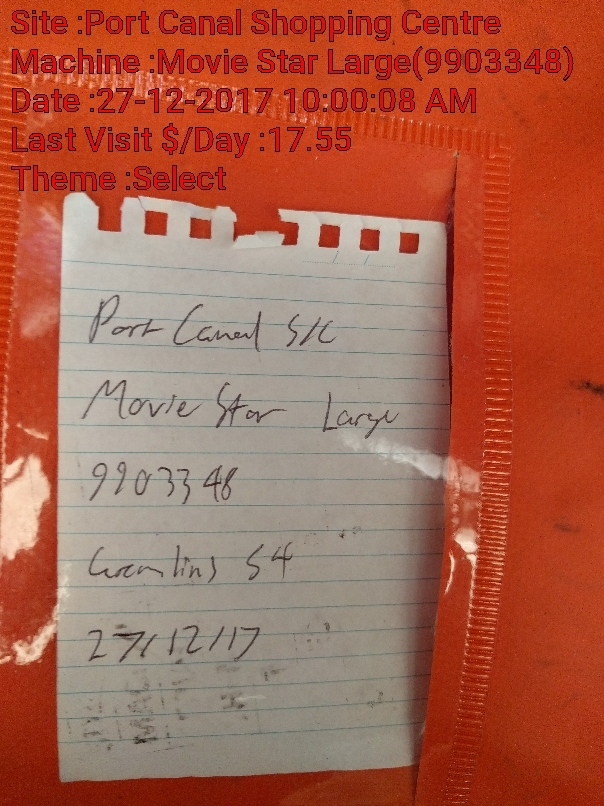 Site :Port Canal Shopping Centre
Machine :Movie Star Large(9903348)
Date :27-12-2017 10:00:08 AM
Last Visit $/Day :17.55
Theme :Select
Port Canal S/C
Movie Star Large
9903348
Gremlins S4
27/12/17